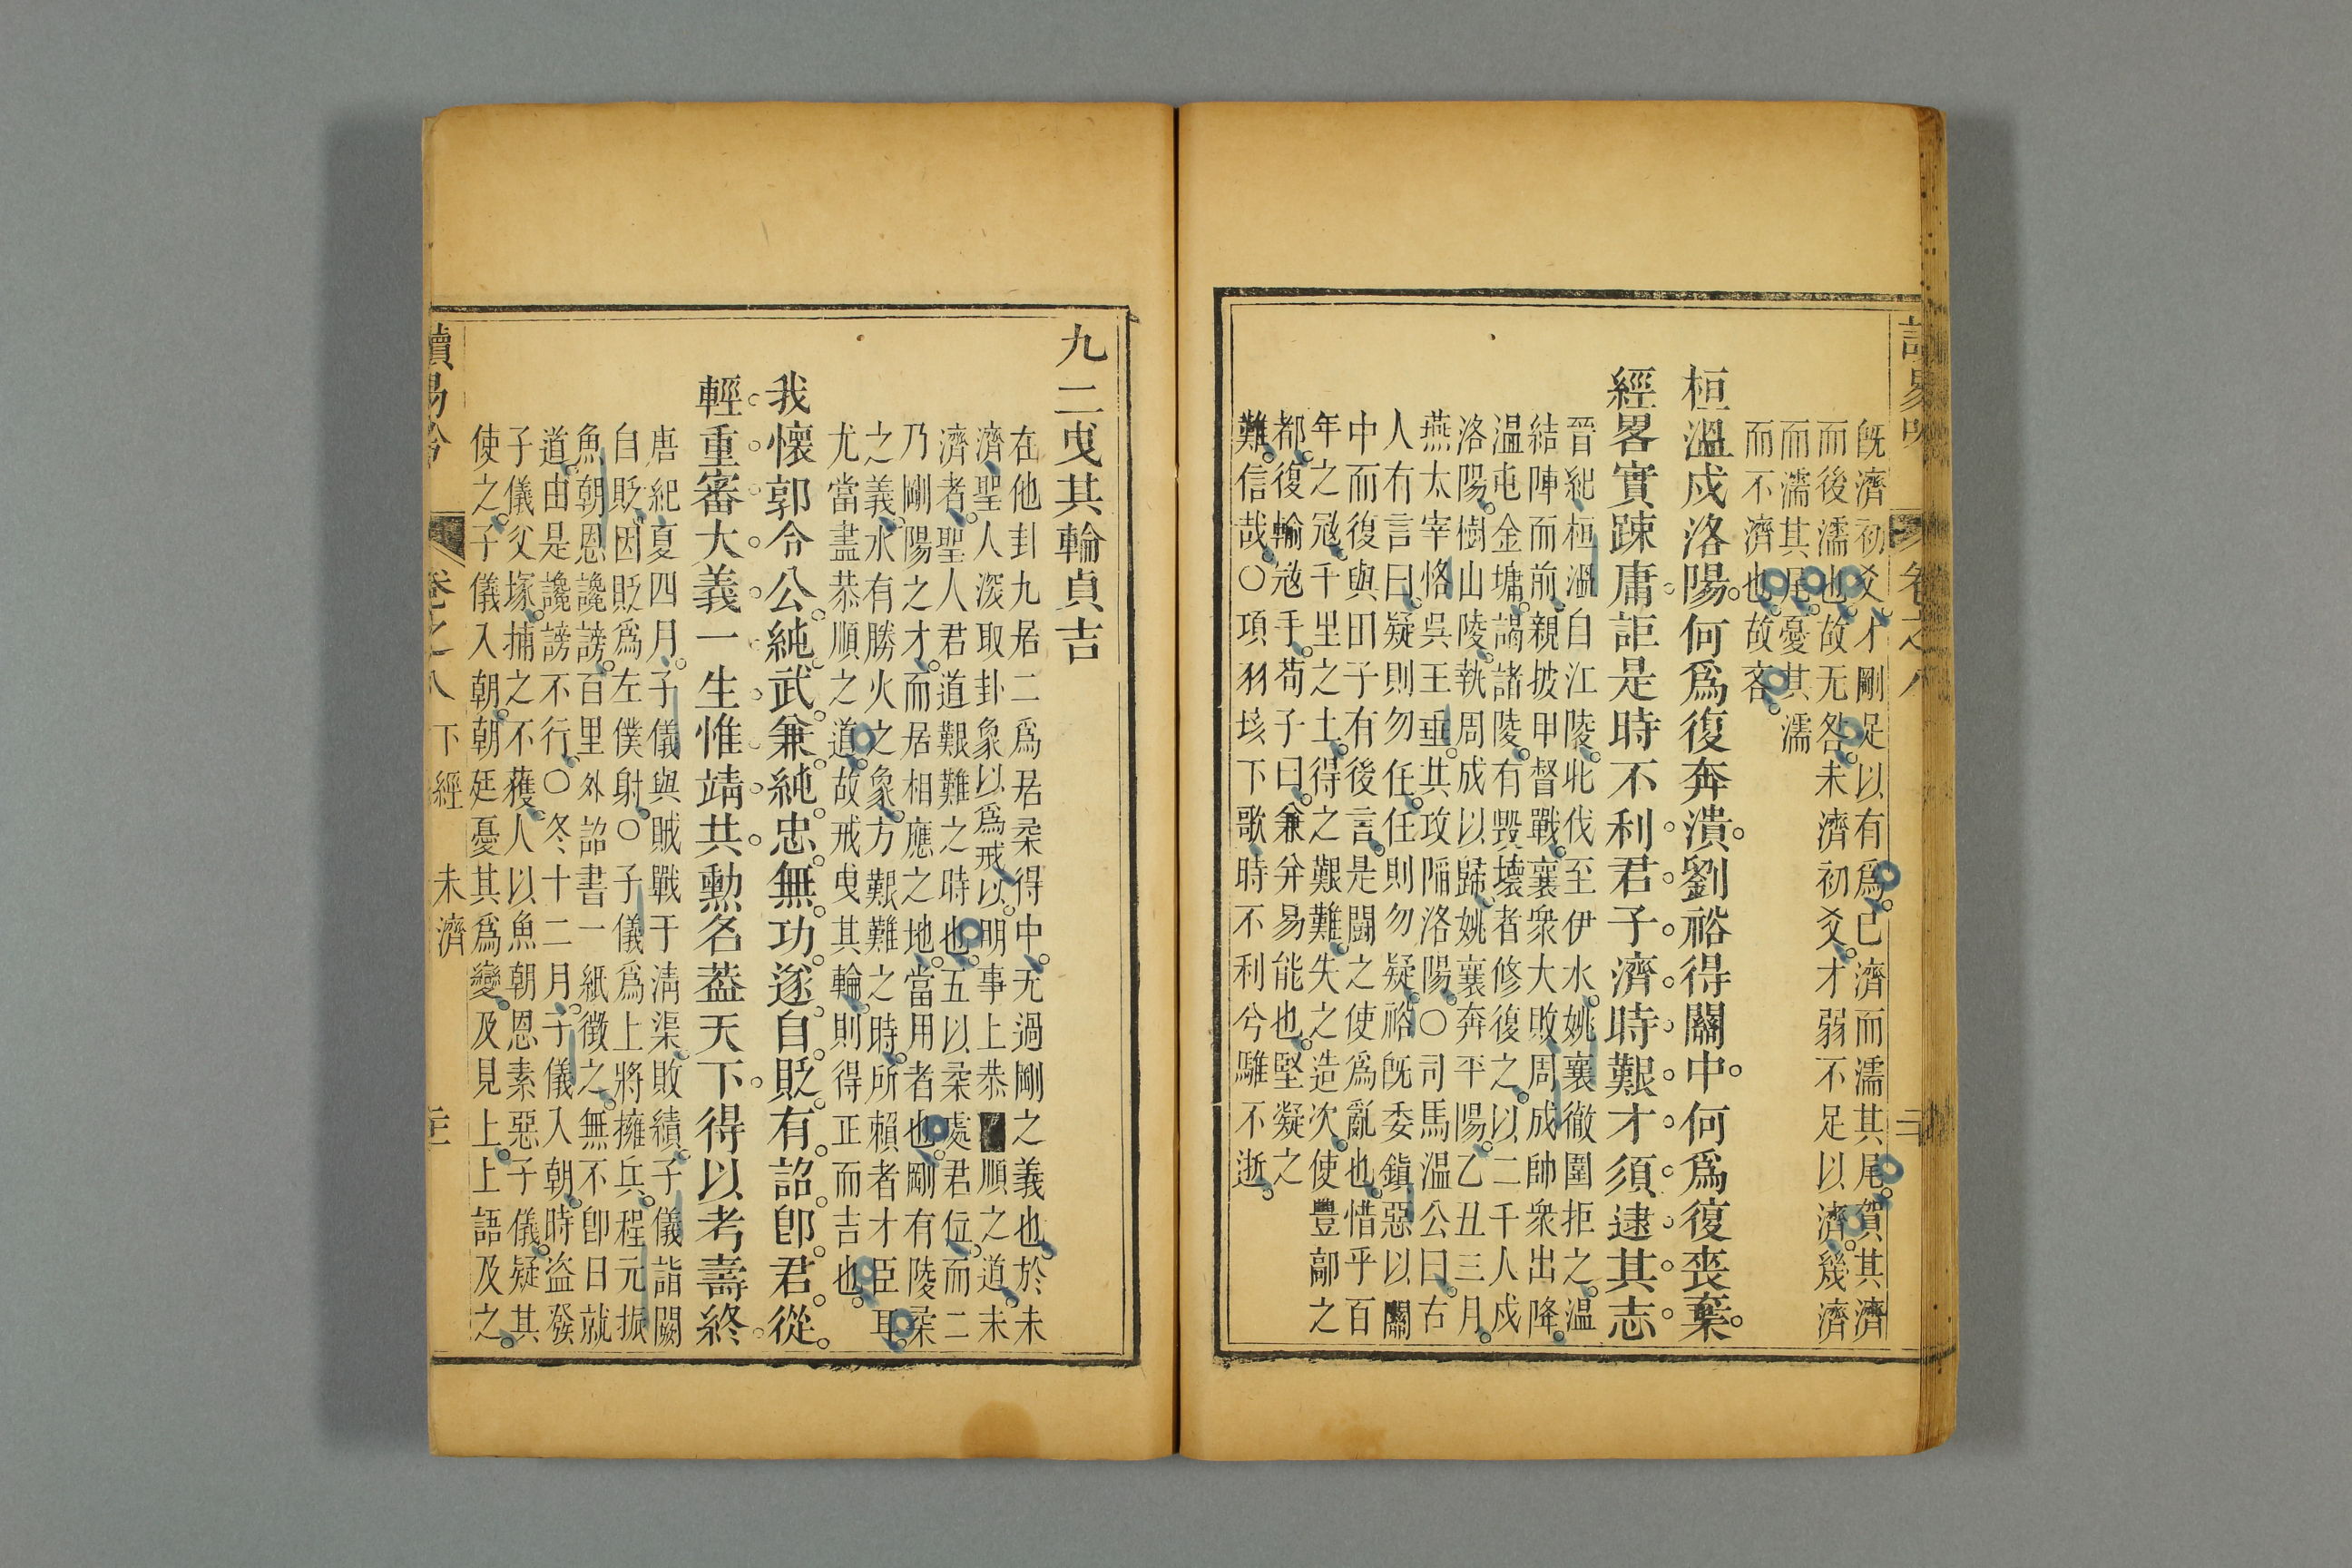 既濟初爻才剛足以有爲已濟而濡其尾賀其濟
而後濡也故无咎未濟初爻才弱不足以濟㡬濟
而濡其尾憂其濡
而不濟也故吝
桓溫戍洛陽何爲復奔潰劉裕得關中何爲復喪棄
經畧實踈庸詎是時不利君子濟時艱才須逮其志
晉紀桓溫自江陵北伐至伊水姚襄徹圍拒之溫
結陣而前親披甲督戰襄衆大敗周成帥衆出降
溫屯金墉謁諸陵有毀壞者修復之以二千人戍
洛陽樹山陵執周成以歸姚襄奔平陽乙丑三月
燕太宰恪吳王垂共攻陷洛陽○司馬溫公曰古
人有言曰疑則勿任任則勿疑裕既委鎮惡以關
中而復與田子有後言是鬬之使爲亂也惜乎百
年之冦千里之土得之艱難失之造次使豐鄗之
都復輸冦手荀子曰兼并易能也堅凝之
難信哉○項羽垓下歌時不利兮騅不逝
卷之八
九二曳其輪貞吉
在他卦九居二爲居柔得中无過剛之義也於未
濟聖人深取卦象以爲戒以明事上恭順之道未
濟者聖人君道艱難之時也五以柔處君位而二
乃剛陽之才而居相應之地當用者也剛有陵柔
之義水有勝火之象方艱難之時所賴者才臣耳
尤當盡恭順之道故戒曳其輪則得正而吉也
我懷郭令公純武兼純忠無功遂自貶有詔即君從
輕重審大義一生惟靖共勲名葢天下得以考壽終
唐紀夏四月子儀與賊戰于淸渠敗績子儀詣闕
自貶因貶爲左僕射○子儀爲上將擁兵程元振
魚朝恩讒謗百里外詔書一紙徵之無不卽日就
道由是讒謗不行○冬十二月子儀入朝時盜發
子儀父塚捕之不獲人以魚朝恩素惡子儀疑其
使之子儀入朝朝廷憂其爲變及見上上語及之
卷之八 下經 未濟